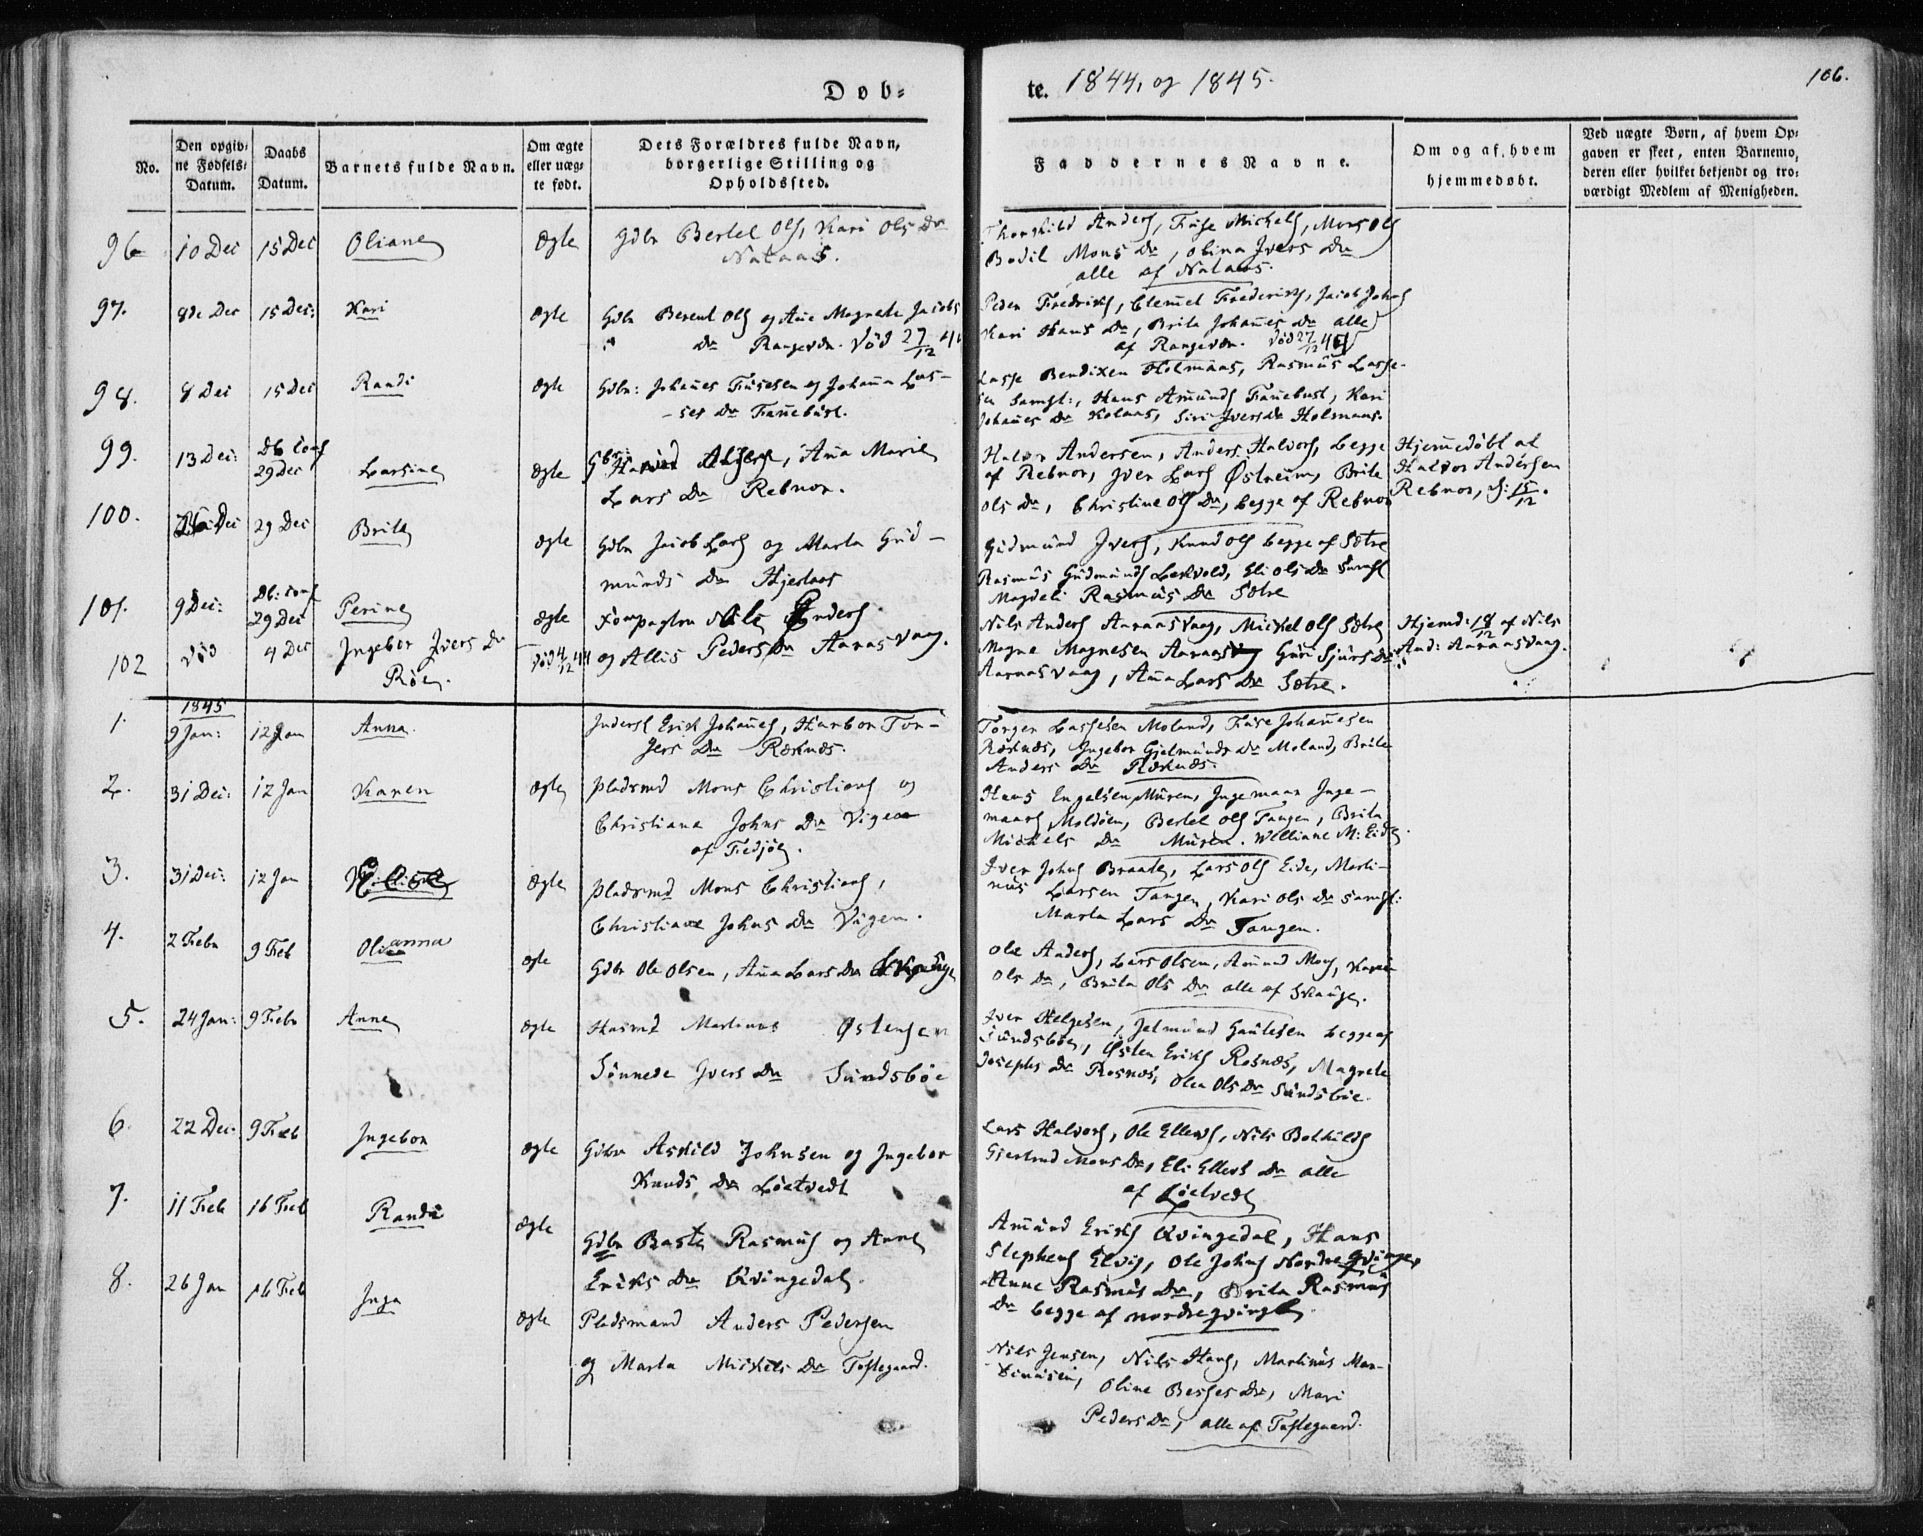 Døb-
te. 1844, og 1845.
106.
No.
Den opgiv-
ne Fødsels-
Datum.
Daabs
Datum.
Barnets fulde Navn.
Om ægte
eller uæg-
te født.
Dets Forældres fulde Navn,
borgerlige Stilling og
Opholdssted.
Faddernes Navne.
Om og af hvem
hjemmedøbt.
Ved uægte Børn, af hvem Op-
gaven er skeet, enten Barnemo-
deren eller hvilket bekjendt og tro-
værdigt Medlem af Menigheden.
96 10 Dec 15 Dec Oliane Ægte Gdbr Bertel Ols, Kari Ols Dr
Nataas.
Anders, Fuse Michels, Mons Ols
Bodil Mons Dr, Olina Ivers Dr
alle af Nataas.
97. 8de Dec 15 Dec: Kari Ægte Gdbr Berent Ols og Ane Magrete Jacobs
Dr Rangevær. død 27/12
Peder Fredriks, Clemet Frederiks, Jacob Johns
Kari Hans Dr, Brita Johannes Dr alle
af Rangevær. død 27/12
98. 8 Dec 15 Dec Randi Ægte Gdbr: Johannes Fusesen og Johanna Las-
ses Dr Fannebust.
Lasse Bendixen Holmaas, Rasmus Lasse-
sen samst:, Hans Amunds Fannebust, Kari
Johannes Dr Kolaas, Siri Ivers Dr Holmaas.
99. 13 Dec: Db Conf
29 Dec Larsine Ægte Anna Marie
Lars Dr Rebnor.
Halvor Andersen, Anders Halvors, begge
af Rebnor, Iver Lars Østreim, Brite
Ols Dr, Christine Ols Dr, begge af Rebnor
Hjemmedøbt af
Halvor Andersen
Rebnor, d: 15/12.
100. 29 Dec Brite Ægte Gdbr Jacob Lars og Marta Gud-
munds Dr Hjertaas
Gudmund Ivers, Knud Ols begge af Sætre
Rasmus Gudmunds Lekvold, Eli Ols Dr samst
Magdeli Rasmus Dr Sætre
101. 9 Dec: Db: Conf
29 Dec Perine Ægte Nils Anders
og Allis Peders Dr Aaraasvaag.
Nils Anders Aaraasvaag, Mickel Ols Sætre
Magne Magnesen Aaraasvaag Guri Sjurs Dr
Aaraasvaag, Anna Lars Dr Sætre.
Hjemd: 18/12 af Nils
And: Aaraasvaag.
102 død 4 Dec Ingebor Ivers Dr
Røe. død 4/12 44
1845
1. 9 Jan: 12 Jan Anna. Inderst Erick Johannes, Hanbor Tor-
gers Dr Røsnæs.
Torger Lassesen Moland, Fuse Johannesen
Røsnæs, Ingebor Gjelmunds Dr Moland, Brite
Anders Dr Røsnæs.
2. 31 Dec: 12 Jan Karen Ægte pladsmd Mons Christians og
Christiane Johns Dr Vigen
af Fedjøe.
Hans Engelsen Muren, Ingemaar Inge-
maars Moldøen, Bertel Ols Tangen, Brita
Michels Dr Muren. Williane M: Eide.
3. 31 Dec: 12 Jan Ægte pladsmd Mons Christians,
Christiane Johns Dr Vigen.
Iver Johns Braate, Lars Ols Eide, Marti-
nus Larsen Tangen, Kari Ols Dr samst:
Marta Lars Dr Tangen.
4. 2 Febr 9 Feb Olianna Ægte Gdbr Ole Olsen, Ana Lars Dr
Ole Anders, Lars Olsen, Amund Mons, Karen
Ols Dr, Brita Ols Dr alle af Skauge.
5. 24 Jan: 9 Febr Anne Ægte Husmd Martinus Østensen
Sønneve Ivers Dr Sundsbøe
Iver Helgesen, Jelmund Gautesen begge af
Sundsbøe, Østen Ericks Rosnæs, Magrete
Josephs Dr Rosnæs, Olea Ols Dr Sundsbøe.
6. 22 Dec: 9 Feb Ingebor Ægte Gdbr Askild Johnsen og Ingebor
Knuds Dr Løetvedt
Lars Halvors, Ole Ellends, Nils Botholds
Gjertrud Mons Dr, Eli Ellens Dr alle
af Løetvedt
7. 11 Feb 16 Feb Randi Ægte Gdbr Baste Rasmus og Anne
Eriks Dr Qvingedal.
Amund Ericks Qvingedal, Hans
Stephens Elvig, Ole Johns Nordre Qvinge,
Anne Rasmus Dr, Brita Rasmus
Dr begge af nordreqvinge.
8. 26 Jan 16 Feb Inga Ægte Pladsmand Anders Pedersen
og Marta Mickels Dr Toftegaard.
Nils Jensen, Nils Hans, Martinus Mar-
tinusen, Oline Besses Dr, Mari
Peders Dr, alle af Toftegaard.